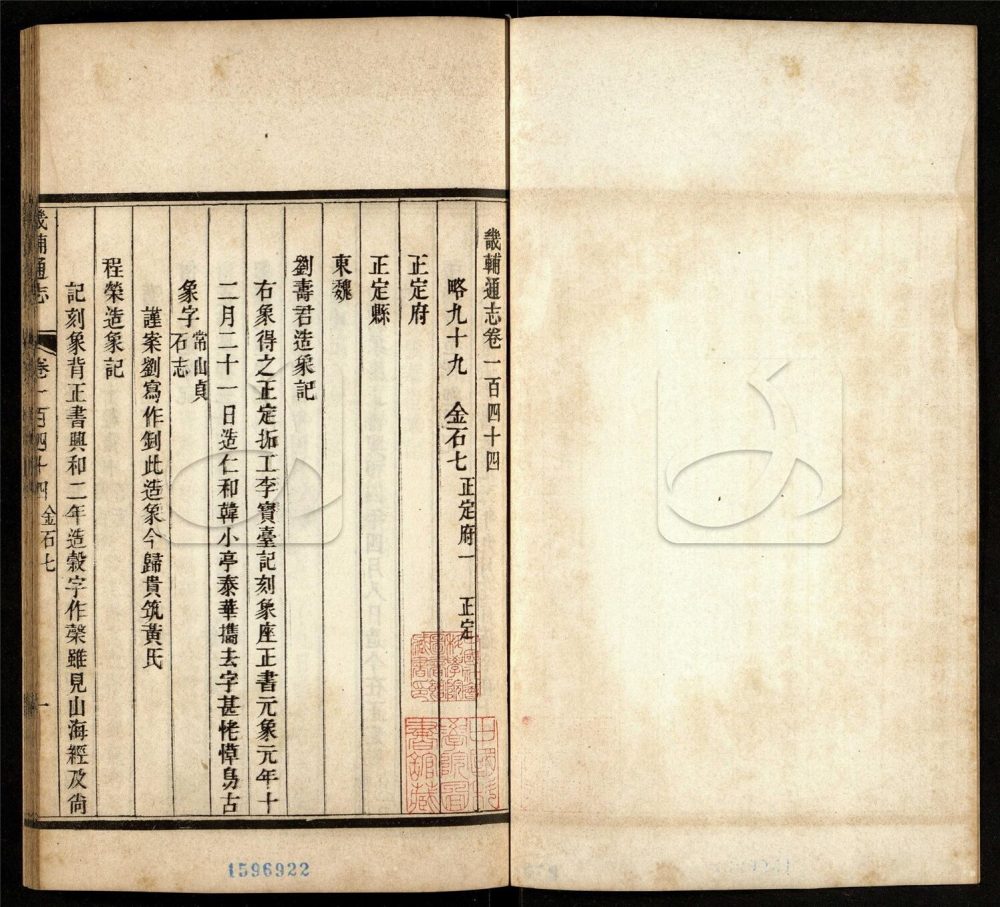 畿輔通志卷一百四十四
略九十九 金石七 正定府一 正定
正定府
正定縣
東魏
劉壽君造象記
右象得之正定拓工李寶臺記刻象座正書元象元年十
二月二十一日造仁和韓小亭泰華攜去字甚恍惚易古
象字 常山貞石志
謹案劉寫作釗此造象今歸貴筑黃氏
程榮造象記
記刻象背正書興和二年造穀字作榖雖見山海經及尙
畿輔通志 卷一百四十四 金石七 一
1596922